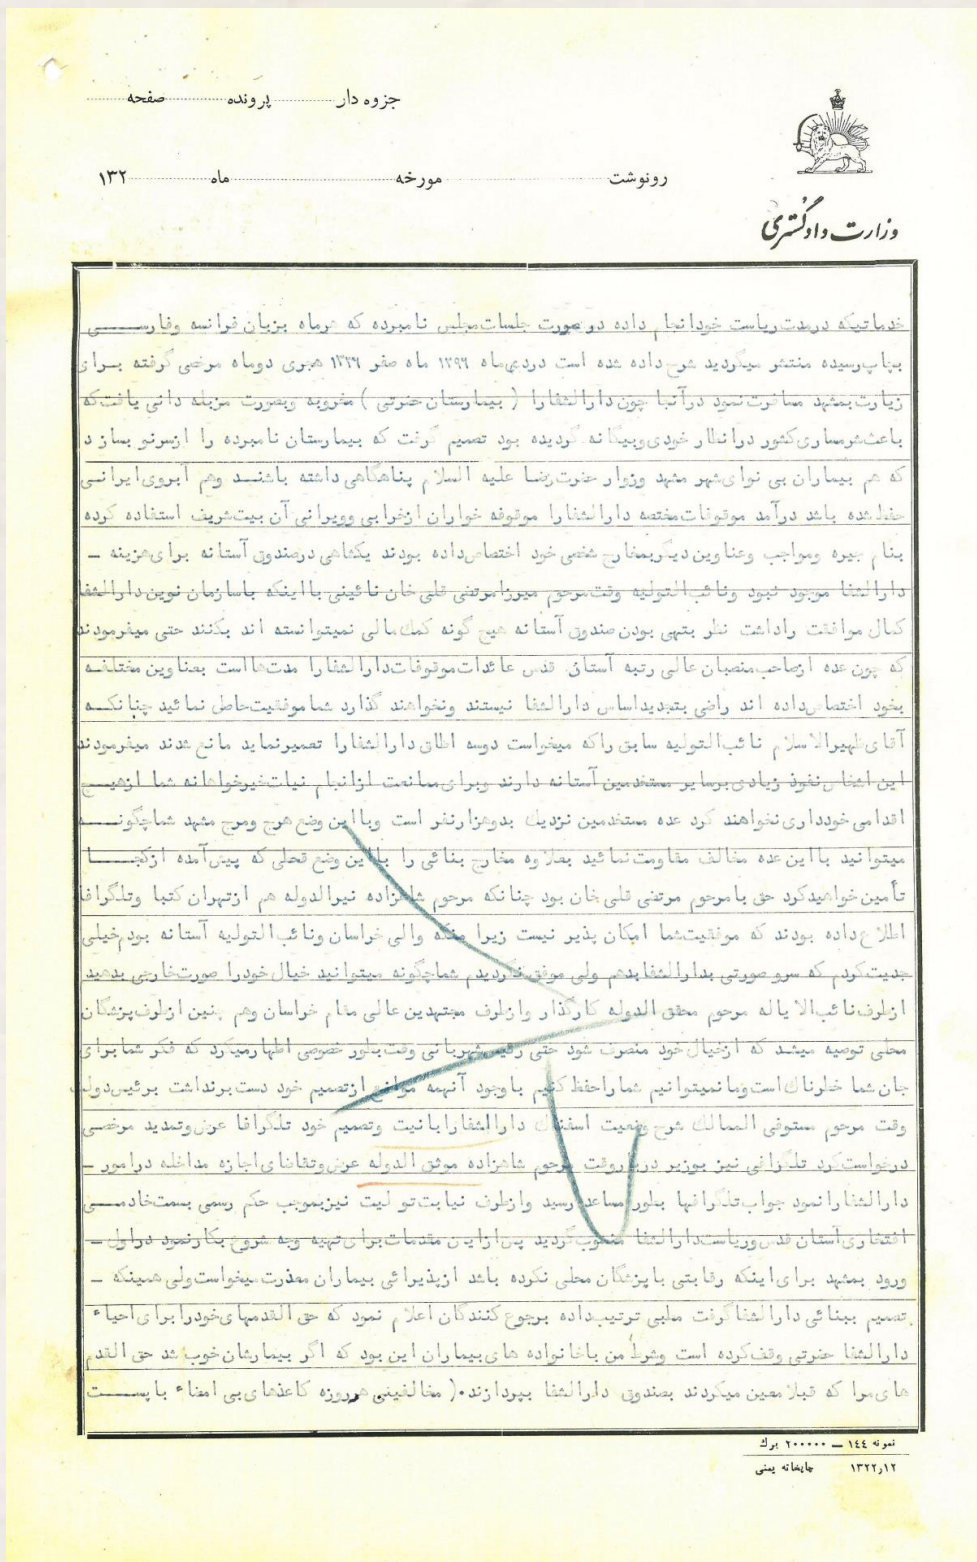 جزوه دار ............ پرونده ............ صفحه ............
رونوشت ............ مورخه ............ ماه ............ ۱۳۲
وزارت دادگستری
خدماتیکه درمدت ریاست خودانجام داده درصورت جلسات مجلس نامبرده که هرماه بزبان فرانسه وفارسی
بچاپ رسیده منتشر میگردید شرح داده شده است دردی ماه ۱۲۹۶ ماه صفر ۱۳۳۶ هجری دوماه مرخصی گرفته برای
زیارت بمشهد مسافرت نمود درآنجا چون دارالشفارا ( بیمارستان حضرتی ) مخروبه وبصورت مزبله دانی یافت که
باعث شرمساری کشور درانظار خودی وبیگانه گردیده بود تصمیم گرفت که بیمارستان نامبرده را ازسرنو بسازد
که هم بیماران بی نوای شهر مشهد وزوار حضرت رضا علیه السلام پناهگاهی داشته باشند وهم آبروی ایرانی
حفظ شده باشد درآمد موقوفات مختصه دارالشفارا موقوفه خواران ازخرابی وویرانی آن بیت شریف استفاده کرده
بنام جیره ومواجب وعناوین دیگر بمخارج شخصی خود اختصاص داده بودند یکشاهی درصندوق آستانه برای هزینه -
دارالشفا موجود نبود ونائب التولیه وقت مرحوم میرزا مرتضی قلی خان نائینی بااینکه باسازمان نوین دارالشفا
کمال موافقت راداشت نظر بتهی بودن صندوق آستانه هیچ گونه کمك مالی نمیتوانسته اند بکنند حتی میفرمودند
که چون عده ازصاحب منصبان عالی رتبه آستان قدس عائدات موقوفات دارالشفارا مدت هااست بعناوین مختلفه
بخود اختصاص داده اند راضی بتجدید اساس دارالشفا نیستند ونخواهند گذارد شما موفقیت حاصل نمائید چنانکه
آقای ظهیرالاسلام نائب التولیه سابق راکه میخواست دوسه اطاق دارالشفارا تعمیرنماید مانع شدند میفرمودند
این اشخاص نفوذ زیادی برسایر مستخدمین آستانه دارند وبرای ممانعت ازانجام نیات خیرخواهانه شما ازهیچ
اقدامی خودداری نخواهند کرد عده مستخدمین نزدیك بدوهزارنفر است وبااین وضع هرج ومرج مشهد شماچگونه
میتوانید بااین عده مخالف مقاومت نمائید بعلاوه مخارج بنائی را بااین وضع قحطی که پیش آمده ازکجا
تأمین خواهیدکرد حق بامرحوم مرتضی قلی خان بود چنانکه مرحوم شاهزاده نیرالدوله هم ازتهران کتبا وتلگرافا
اطلاع داده بودند که موفقیت شما امکان پذیر نیست زیرا منکه والی خراسان ونائب التولیه آستانه بودم خیلی
جدیت کردم که سرو صورتی بدارالشفا بدهم ولی موفق نگردیدم شماچگونه میتوانید خیال خودرا صورت خارجی بدهید
ازطرف نائب الایاله مرحوم محقق الدوله کارگذار وازطرف مجتهدین عالی مقام خراسان وهم چنین ازطرف پزشگان
محلی توصیه میشد که ازخیال خود منصرف شود حتی رئیس شهربانی وقت بطور خصوصی اظهارمیکرد که فکر شما برای
جان شما خطرناك است ومانمیتوانیم شماراحفظ کنیم باوجود آنهمه موانع ازتصمیم خود دست برنداشت برئیس دولت
وقت مرحوم مستوفی الممالك شرح وضعیت اسفناك دارالشفارابانیت وتصمیم خود تلگرافا عرض وتمدید مرخصی
درخواست کرد تلگرافی نیز بوزیر دربار وقت مرحوم شاهزاده موثق الدوله عرض وتقاضای اجازه مداخله درامور -
دارالشفارانمود جواب تلگرافها بطور مساعد رسید وازطرف نیابت تولیت نیزبموجب حکم رسمی بسمت خادمی
افتخاری آستان قدس وریاست دارالشفا منصوب گردید پس ازاین مقدمات برای تهیه وجه شروع بکارنمود دراول -
ورود بمشهد برای اینکه رقابتی باپزشگان محلی نکرده باشد ازپذیرائی بیماران معذرت میخواست ولی همینکه -
تصمیم ببنائی دارالشفاگرفت مطبی ترتیب داده برجوع کنندگان اعلام نمود که حق القدمهای خودرا برای احیاء
دارالشفا حضرتی وقف کرده است وشرط من باخانواده های بیماران این بود که اگر بیمارشان خوب شد حق القدم
های مرا که قبلا معین میکردند بصندوق دارالشفا بپردازند.( مخالفینی هرروزه کاغذهای بی امضاء باپست
نمونه ۱٤٤ — ۲۰۰۰۰۰ برك
۱۳۲۲٫۱۲ چاپخانه یمنی